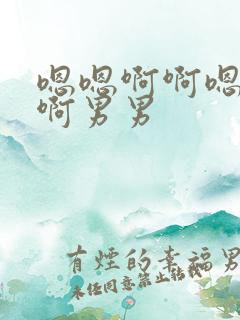 嗯嗯啊啊嗯
啊男男
有煙的幸福男
未经同意禁止转载